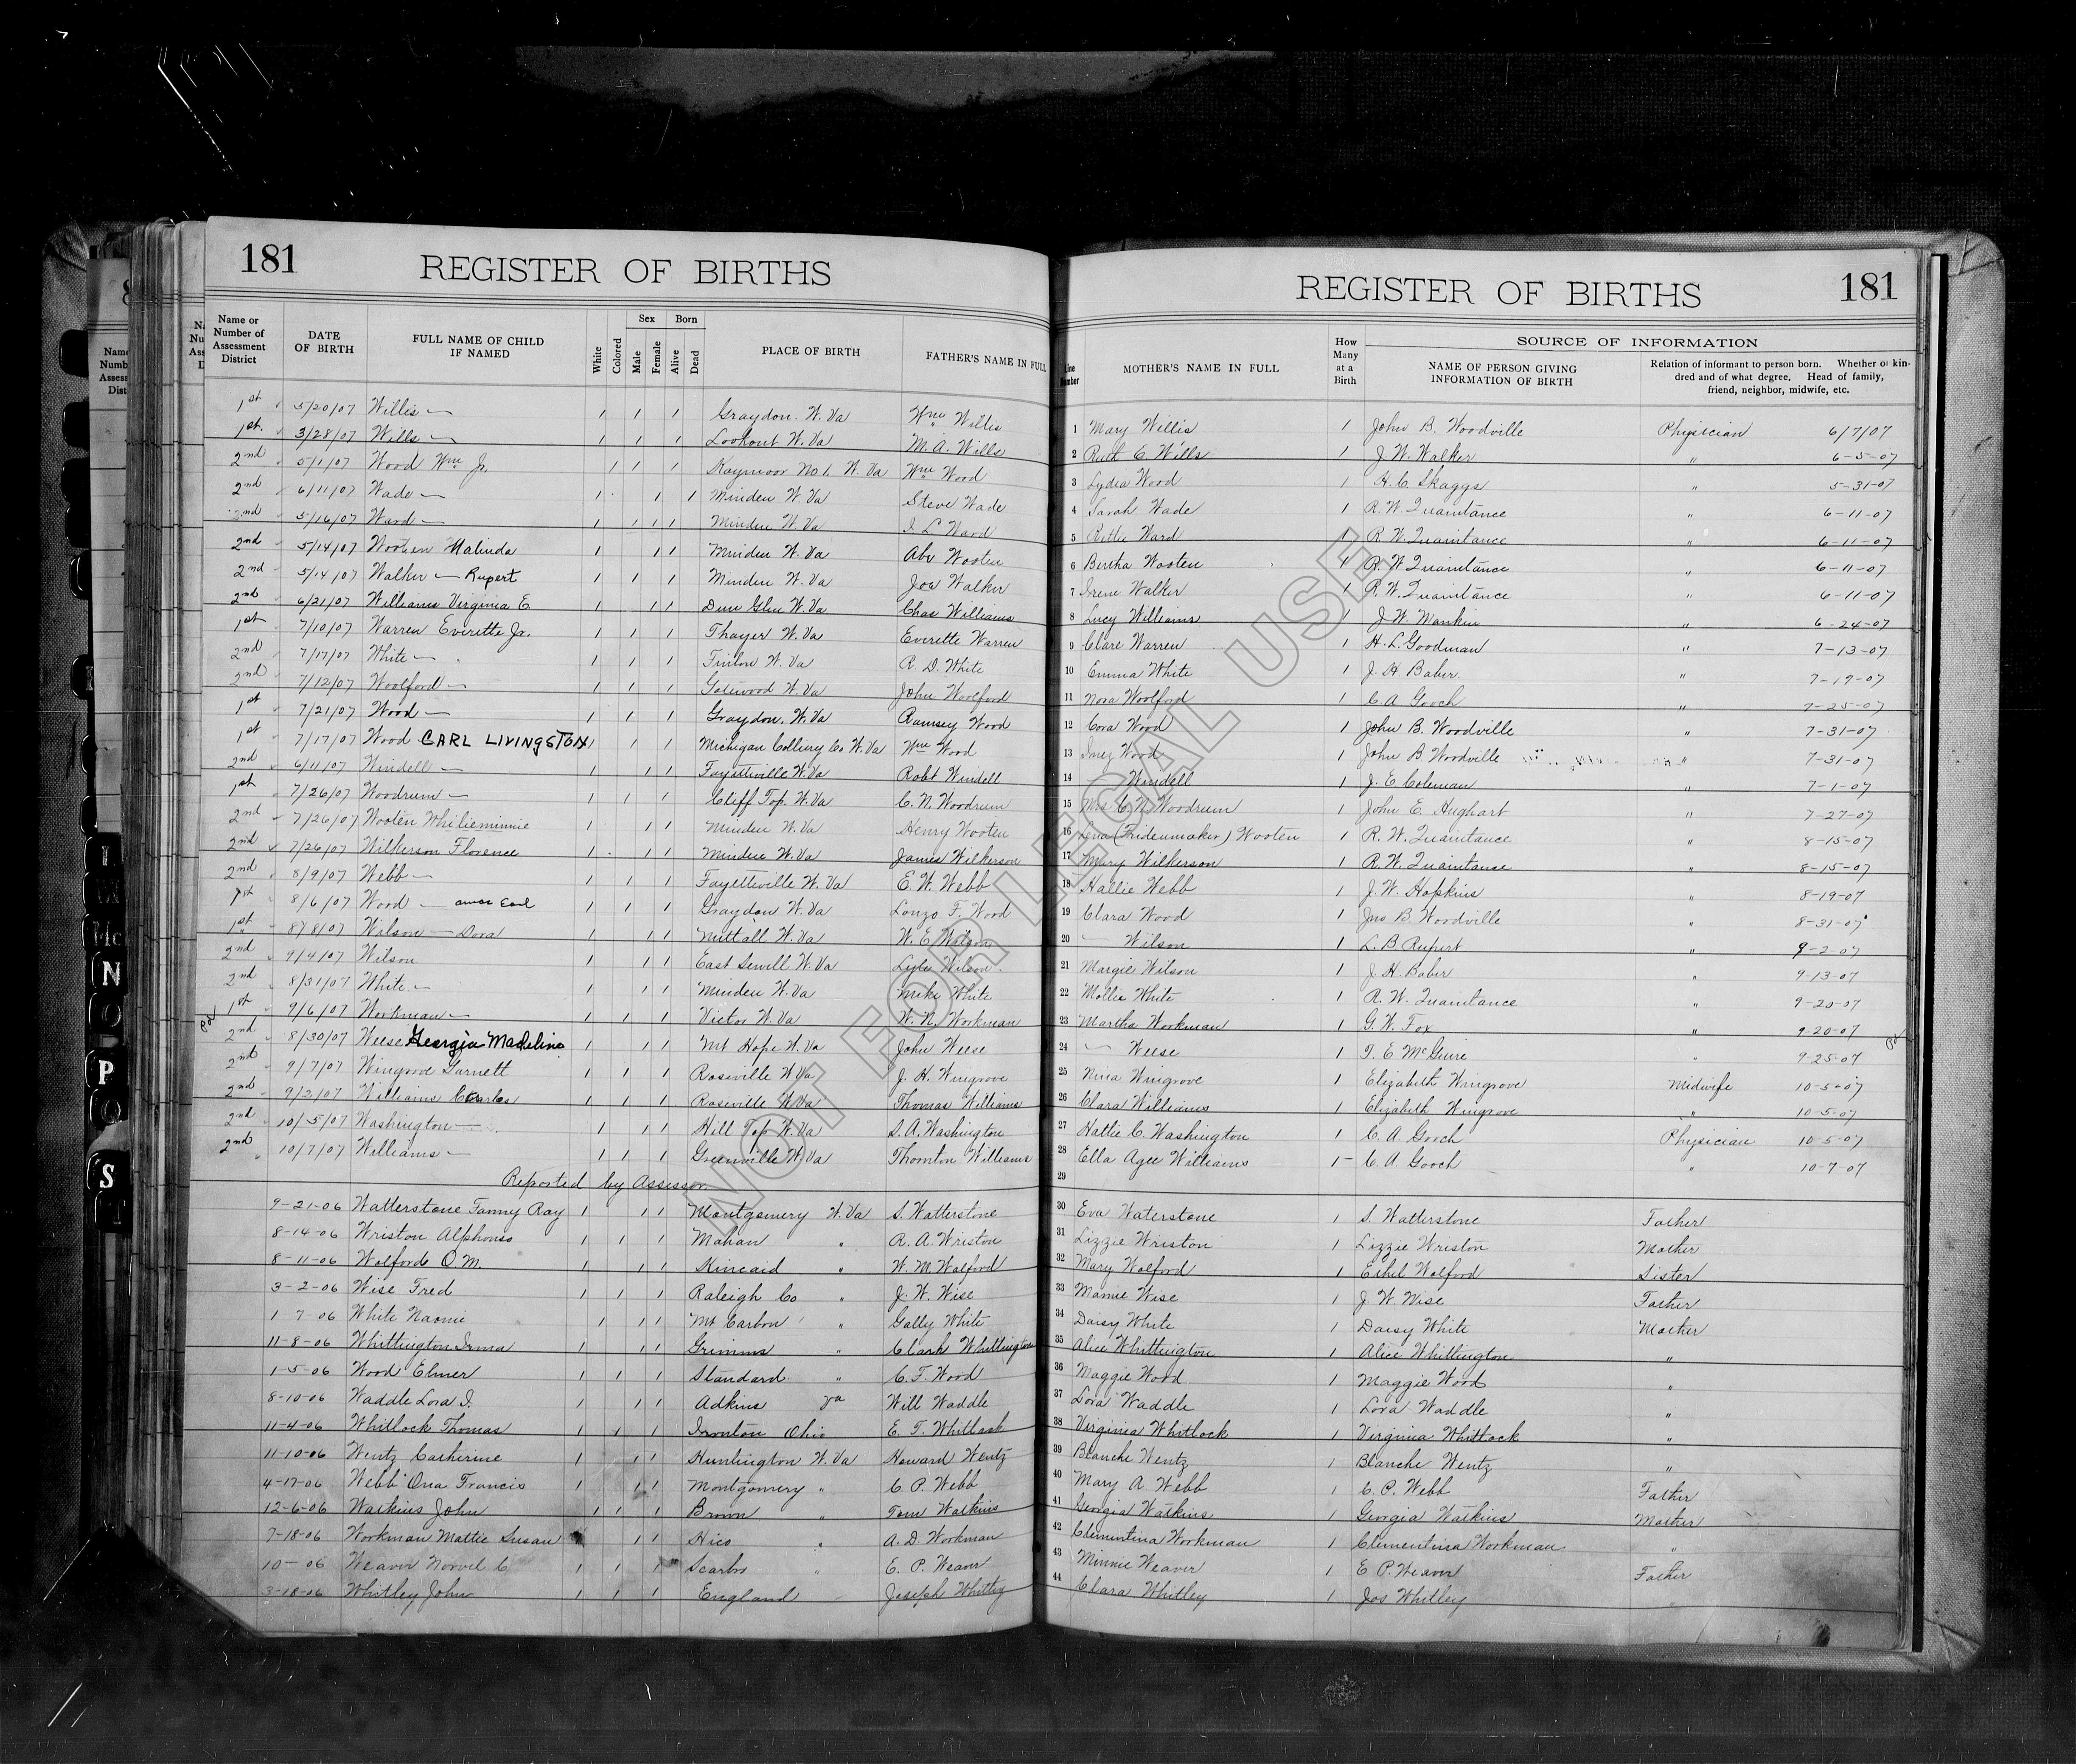 181
REGISTER OF BIRTHS
REGISTER OF BIRTHS
181
Name or Number of Assessment District
DATE OF BIRTH
FULL NAME OF CHILD IF NAMED
White
Colored
Sex
Male
Female
Born
Alive
Dead
PLACE OF BIRTH
FATHER'S NAME IN FULL
Line Number
MOTHER'S NAME IN FULL
How Many at a Birth
SOURCE OF INFORMATION
NAME OF PERSON GIVING INFORMATION OF BIRTH
Relation of informant to person born. Whether of kindred and of what degree. Head of family, friend, neighbor, midwife, etc.
1st 5/20/07 Willis — / / / Graydon W. Va Wm Willis 1 Mary Willis 1 John B. Woodville Physician 6/7/07
1st 3/28/07 Wills — / / / Lookout W. Va M. A. Wills 2 Ruth E. Wills 1 J. W. Walker " 6-5-07
2nd 5/1/07 Wood Wm Jr. / / / Kaymoor No 1. W. Va Wm Wood 3 Lydia Wood 1 H. C. Skaggs " 5-31-07
2nd 6/11/07 Wade — / / / Minden W. Va Steve Wade 4 Sarah Wade 1 R. W. Quaintance " 6-11-07
2nd 5/16/07 Ward — / / / Minden W. Va I L Ward 5 Ward 1 R. W. Quaintance " 6-11-07
2nd 5/14/07 Wooten Malinda / / / Minden W. Va Abe Wooten 6 Bertha Wooten 1 R. W. Quaintance " 6-11-07
2nd 5/14/07 Walker — Rupert / / / Minden W. Va Joe Walker 7 Irene Walker 1 R. W. Quaintance " 6-11-07
2nd 6/21/07 Williams Virginia E / / / Dun Glen W. Va Chas Williams 8 Lucy Williams 1 J. W. Mankin " 6-24-07
1st 7/10/07 Warren Everette Jr. / / / Thayer W. Va Everette Warren 9 Clare Warren 1 H. L. Goodman " 7-13-07
2nd 7/17/07 White — / / / Finlow W. Va R. D. White 10 Emma White 1 J. H Baber " 7-19-07
2nd 7/12/07 Woolford — / / / Gatewood W. Va John Woolford 11 Nora Woolford 1 C A Gooch " 7-25-07
1st 7/21/07 Wood — / / / Graydon, W. Va Ramsey Wood 12 Cora Wood 1 John B. Woodville " 7-31-07
1st 7/17/07 Wood CARL LIVINGSTON / / / Michigan Colliery Co W. Va Wm Wood 13 Inez Wood 1 John B. Woodville " 7-31-07
2nd 6/11/07 Windell — / / / Fayetteville W. Va Robt Windell 14 Windell 1 J. E. Coleman " 7-1-07
1st 7/26/07 Woodrum — / / / Cliff Top, W. Va C. N. Woodrum 15 Mrs C. N. Woodrum 1 John E. Hughart " 7-27-07
2nd 7/26/07 Wooten Whilieminnie / / / Minden W. Va Henry Wooten 16 Lena (Fridenmaker) Wooten 1 R. W. Quaintance " 8-15-07
2nd 7/26/07 Wilkerson Florence / / / Minden W. Va James Wilkerson 17 Mary Wilkerson 1 R. W. Quaintance " 8-15-07
2nd 8/9/07 Webb — / / / Fayetteville W. Va E. W. Webb 18 Hallie Webb 1 J. W. Hopkins " 8-19-07
1st 8/6/07 Wood — Earl / / / Graydon W. Va Lonzo F. Wood 19 Clara Wood 1 Jno B. Woodville " 8-31-07
1st 8/8/07 Wilson — Dora / / / Nuttall W. Va W. E. Wilson 20 — Wilson 1 L. B Rupert " 9-2-07
2nd 9/4/07 Wilson / / / East Sewell W. Va Lyle Wilson 21 Margie Wilson 1 J. H. Baber " 9-13-07
2nd 8/31/07 White — / / / Minden W. Va Mike White 22 Mollie White 1 R. W. Quaintance " 9-20-07
1st 9/6/07 Workman — / / / Victor W. Va W. N. Workman 23 Martha Workman 1 G. W. Fox " 9-20-07
2nd 8/30/07 Weese Georgia Madeline / / / Mt Hope W. Va John Weese 24 — Weese 1 T. E McGuire " 9-25-07
2nd 9/7/07 Wingrove Garnett / / / Roseville W. Va J. H. Wingrove 25 Nina Wingrove 1 Elizabeth Wingrove Midwife 10-5-07
2nd 9/2/07 Williams Charles / / / Roseville W. Va Thomas Williams 26 Clara Williams 1 Elizabeth Wingrove " 10-5-07
2nd 10/5/07 Washington — / / / Hill Top W. Va S. A. Washington 27 Hattie C. Washington 1 C. A. Gooch Physician 10-5-07
2nd 10/7/07 Williams — / / / Greenville W. Va Thornton Williams 28 Ella Agee Williams 1 C. A. Gooch " 10-7-07
Reported by Assessor 29
9-21-06 Watterstone Fanny Ray / / / Montgomery W. Va S. Watterstone 30 Eva Waterstone 1 S. Watterstone Father
8-14-06 Wriston Alphonso / / / Mahan " R. A. Wriston 31 Lizzie Wriston 1 Lizzie Wriston Mother
8-11-06 Wolford O. M. / / / Kincaid " W. M. Wolford 32 Mary Wolford 1 Ethel Wolford Sister
3-2-06 Wise Fred / / / Raleigh Co " J. W. Wise 33 Mamie Wise 1 J. W. Wise Father
1 7 06 White Naomie / / / Mt Carbon " Gally White 34 Daisy White 1 Daisy White Mother
11-8-06 Whittington Irma / / / Grimms " Clark Whittington 35 Alice Whittington 1 Alice Whittington "
1-5-06 Wood Elmer / / / Standard " C. F. Wood 36 Maggie Wood 1 Maggie Wood "
8-10-06 Waddle Lora I. / / / Adkins Va Will Waddle 37 Lora Waddle 1 Lora Waddle "
11-4-06 Whitlock Thomas / / / Ironton Ohio E. T. Whitlock 38 Virginia Whitlock 1 Virginia Whitlock "
11-10-06 Wentz Catherine / / / Huntington W. Va Howard Wentz 39 Blanche Wentz 1 Blanche Wentz "
4-17-06 Webb Ona Francis / / Montgomery " C. P. Webb 40 Mary A. Webb 1 C. P. Webb Father
12-6-06 Watkins John / / / Brown " Tom Watkins 41 Georgia Watkins 1 Georgia Watkins Mother
7-18-06 Workman Mattie Susan / / Hico " A. D. Workman 42 Clementina Workman 1 Clementina Workman "
10- 06 Weaver Norvel C / / / Scarbro " E. P. Weaver 43 Minnie Weaver 1 E. P. Weaver Father
8-18-06 Whitley John / / / England Joseph Whitley 44 Clara Whitley 1 Jos Whitley "
NOT FOR LEGAL USE
Mc
N
O
P
Q
S